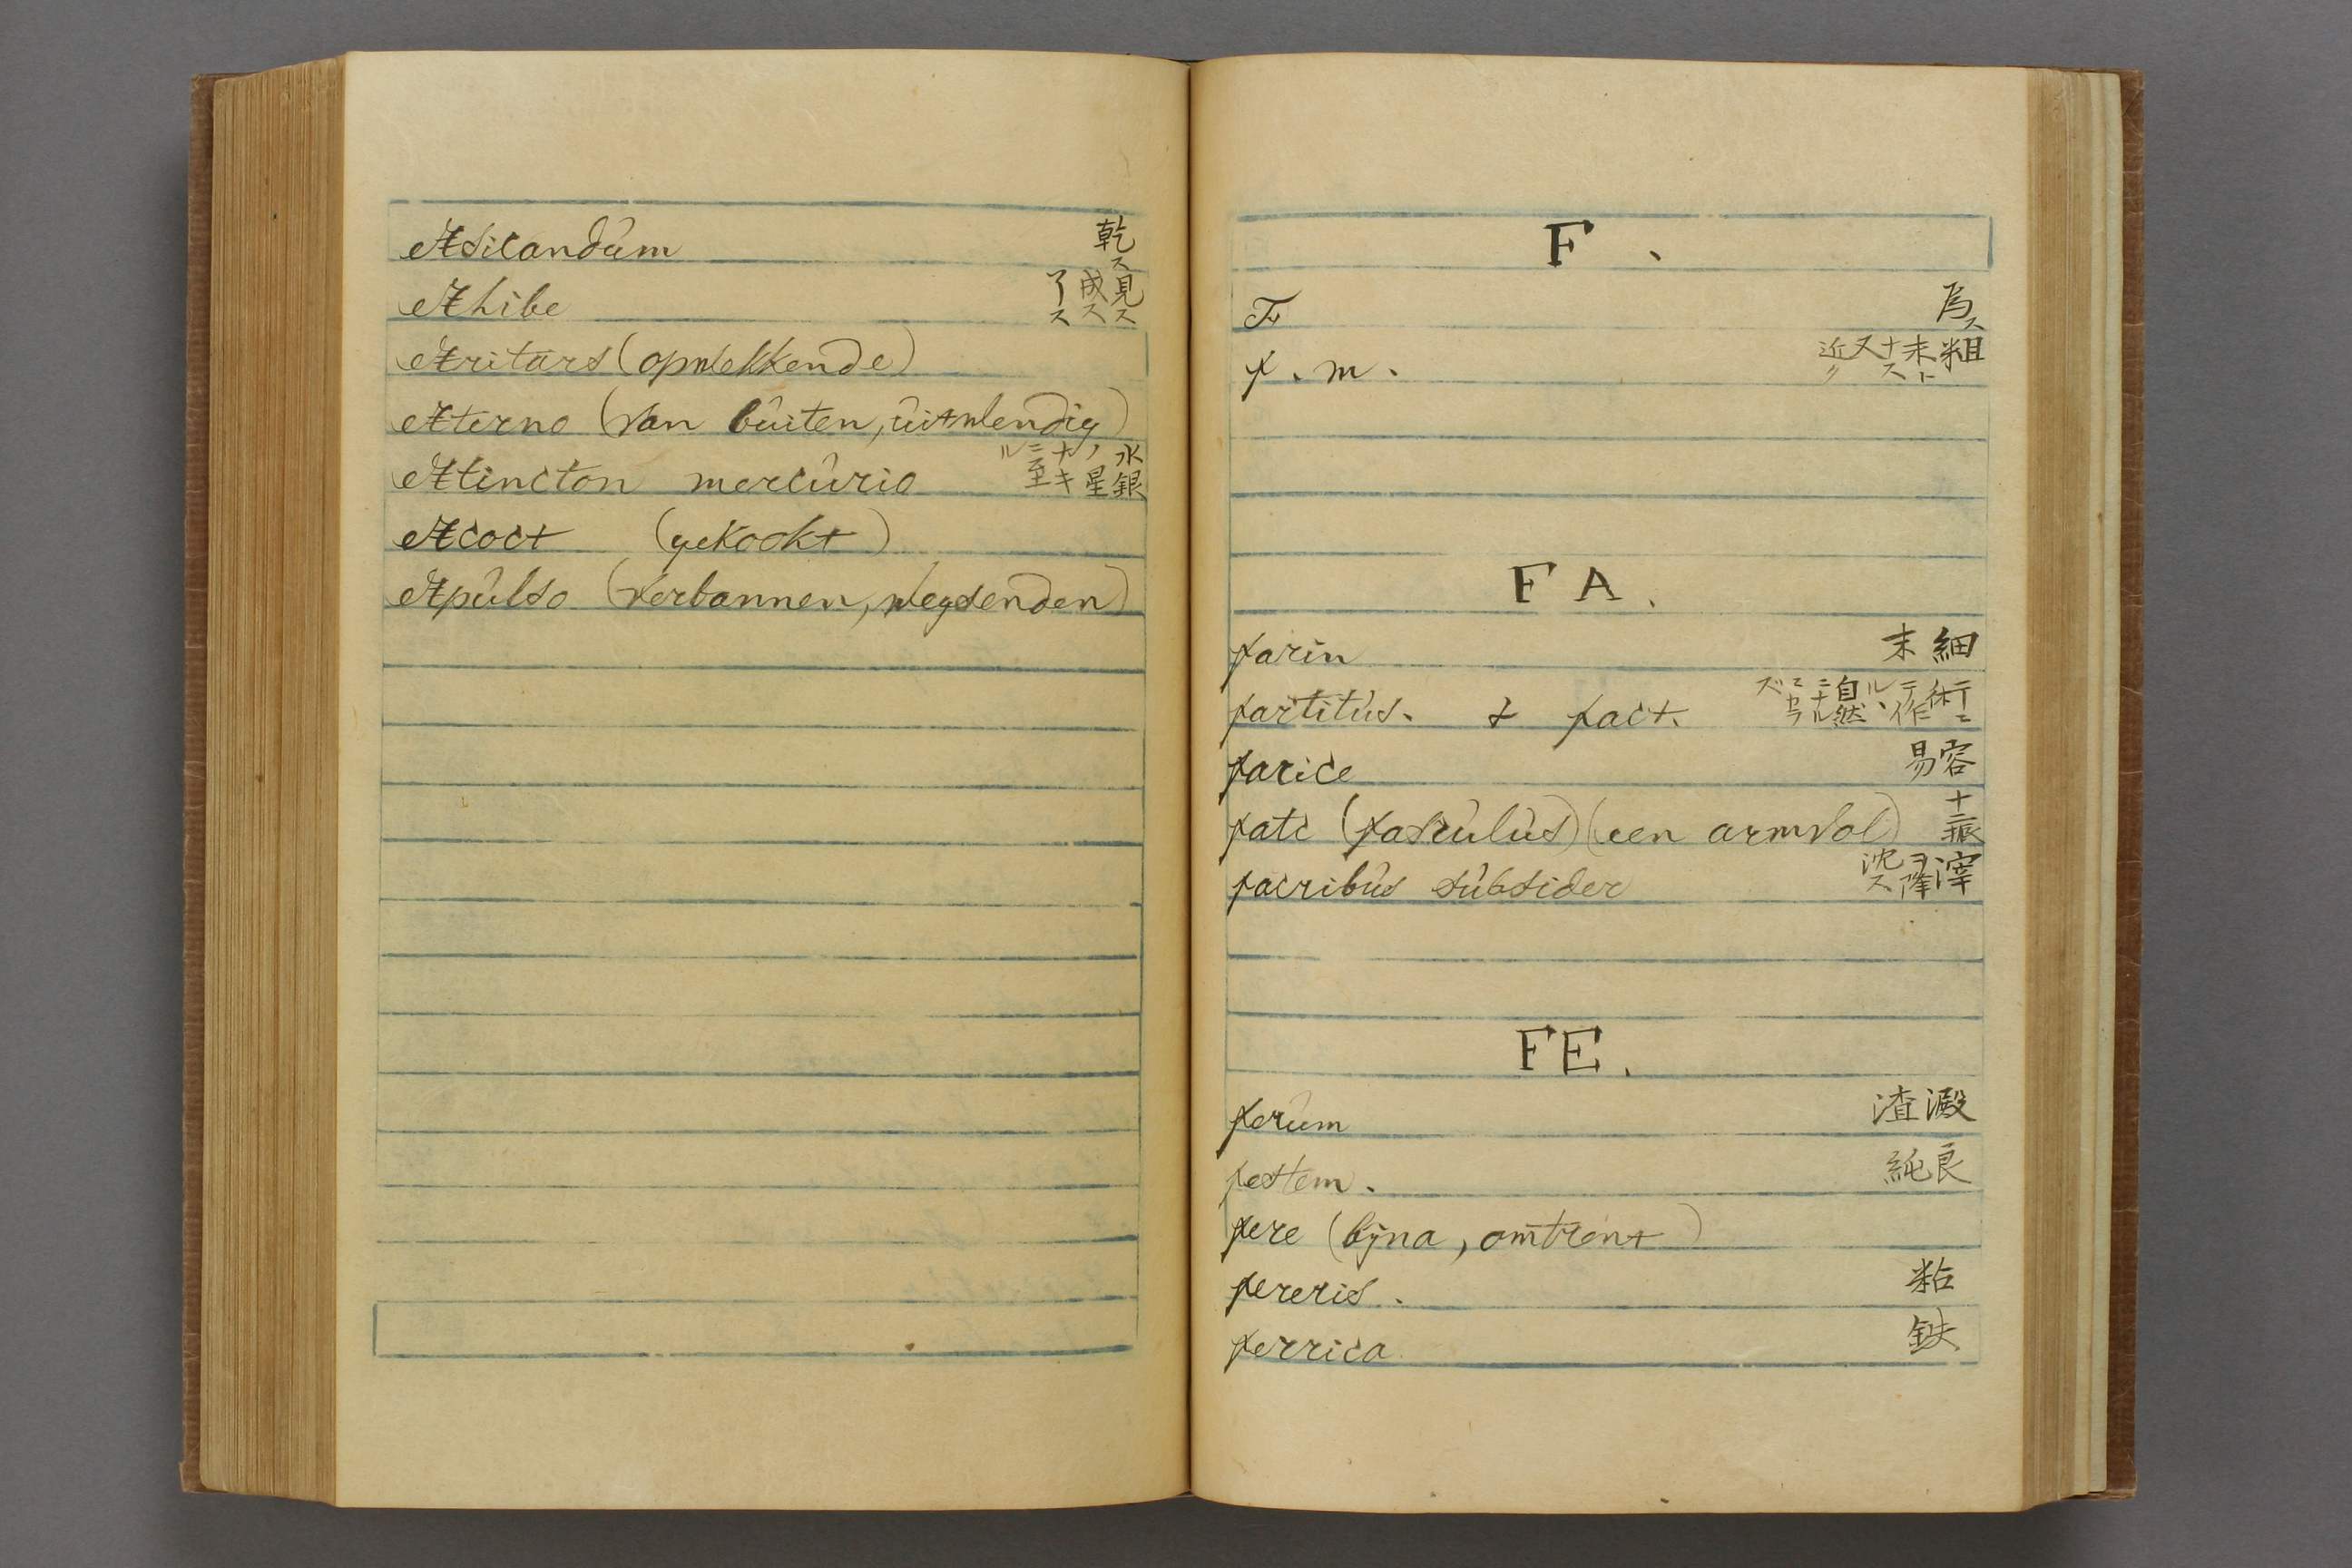 Exsicandum 乾ス
Exhibe 見ス 成ス 了ス
Exritars (opwekkende)
Externo (van buiten, uitwendig)
Extincton mercurio 水銀ノ星ナキニ至ル
Excoct (gekookt)
Expulso (verbannen, wegsenden)
F.
F 為ス
f. m. 粗末トナス又近ク
FA.
farin 細末
fartitus. & fact.
farice 容易
fatc (fasculus) (een armvol)
facribus subsider
FE.
ferum 澱渣
festem. 良純
fere (byna, omtrent)
fereris. 粘
ferrica 鉄